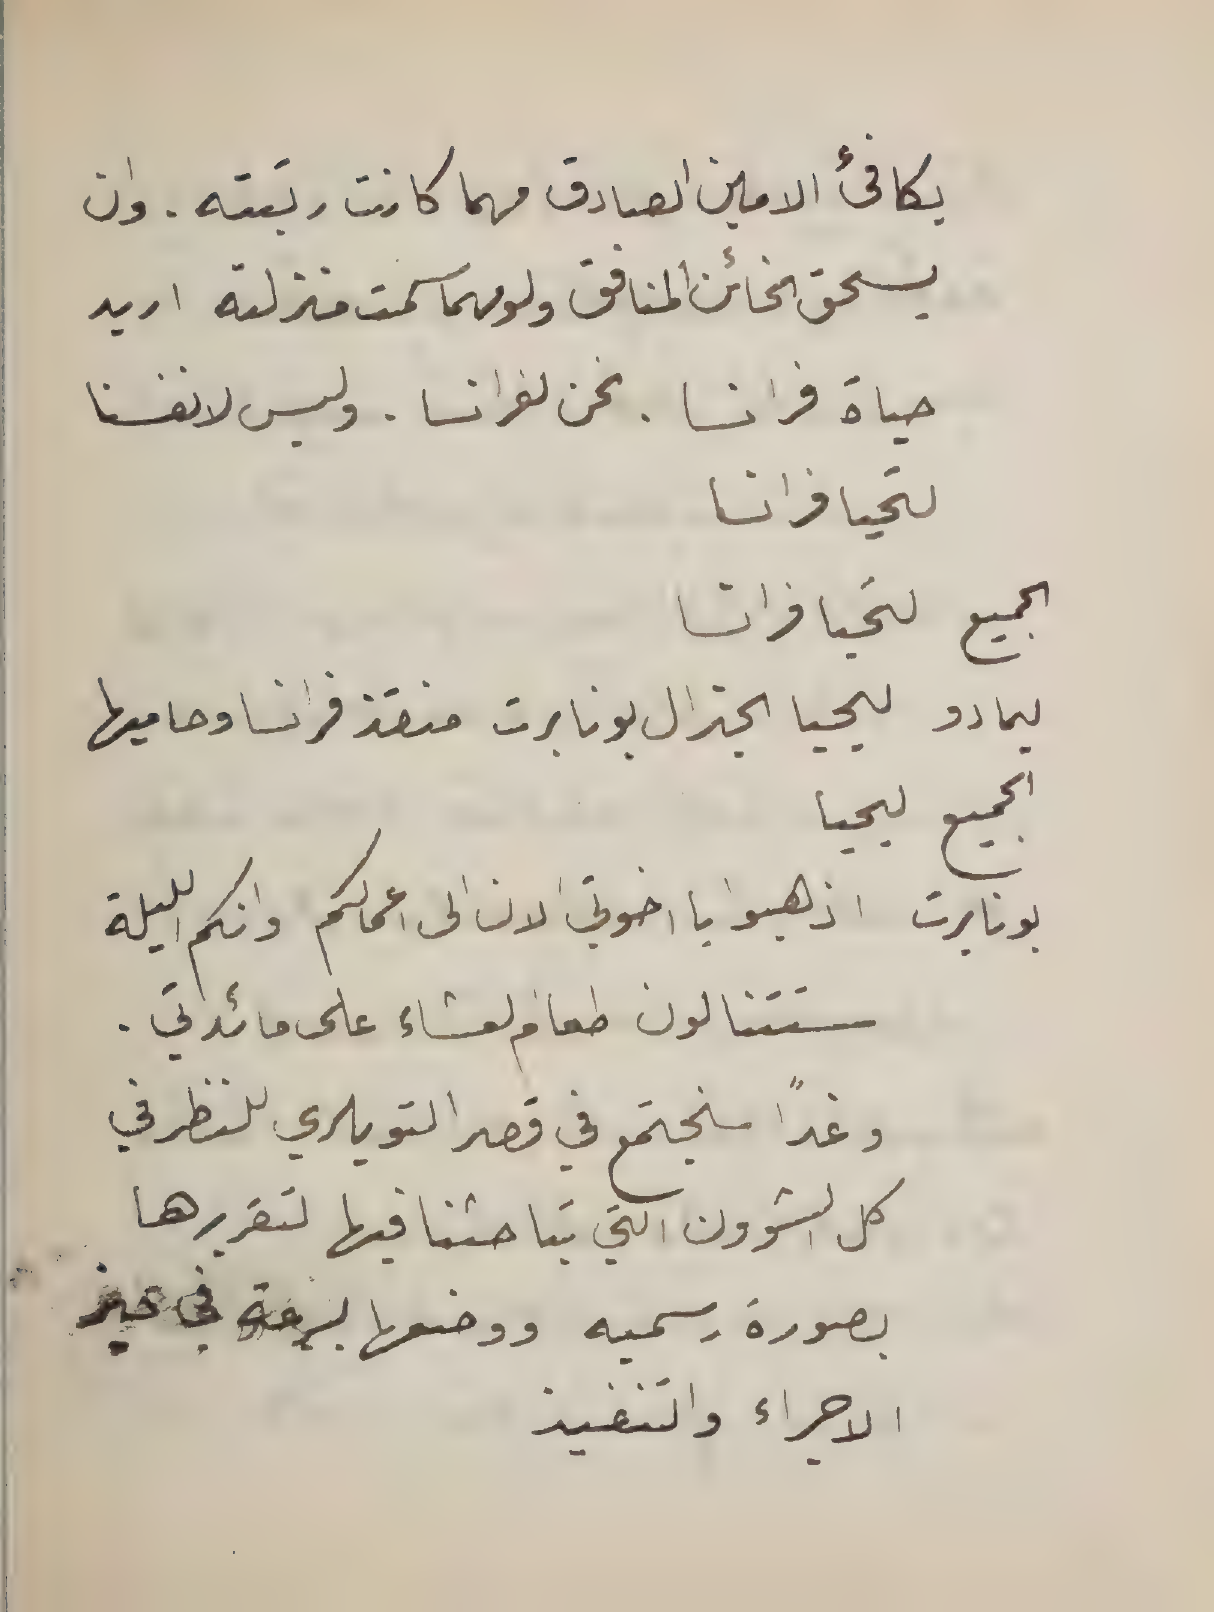 يكافئ الامين الصادق مهما كانت رتبته . وان
يسحق الخائن المنافق ولو مهما سمت منزلته اريد
حياة فرانسا . نحن لفرانسا . وليس لانفسنا
لتحيا فرانسا
الجميع لتحيا فرانسا
ليمادو ليحيا الجنرال بونابرت منقذ فرانسا وحاميها
الجميع ليحيا
بونابرت اذهبوا يا اخوتي الان الى اعمالكم وانكم الليلة
ستتنالون طعام لعشاء على مائدتي .
وغدًا سنجتمع في قصر التويلري للنظر في
كل الشوون التي تباحثنا فيها لتقريرها
بصورة رسميه ووضعها بسرعة في حيز
الاجراء والتنفيذ